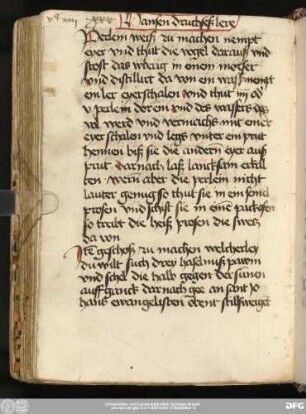 Hansen druchseß lere
Perlein weiß zu machen nempt
eyer vnd thut die vogel darauß vnd
stost das vberig in einem morser
vnd distillirt da von ein waß nempt
ein ler eyerschalen vnd thut iiij od
v perlein dorein vnd des wasers das
vol werd vnd vermachs mit einer
eyer schalen vnd legs vnter ein prut
hennen biß sie die andern eyer auß
prut darnach laß lancksam erkül
ten wern aber die perlein nicht
lauter genug so thut sie in ein semel
prosen vnd schist sie in eine packofen
so treibt die heiß prosen die swertz
da von
geschoß zu machen welcherley
du wilt such drey haselnuß pawm
vnd schel die halb gegen der sunen
auff ganck darnach gee an sant jo
hans ewangelisten obent stilsweiget